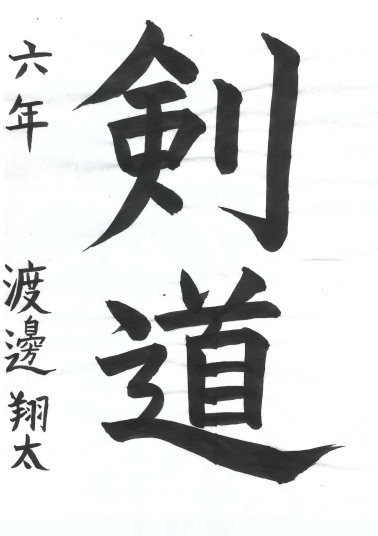 剣道
六年 渡邊翔太